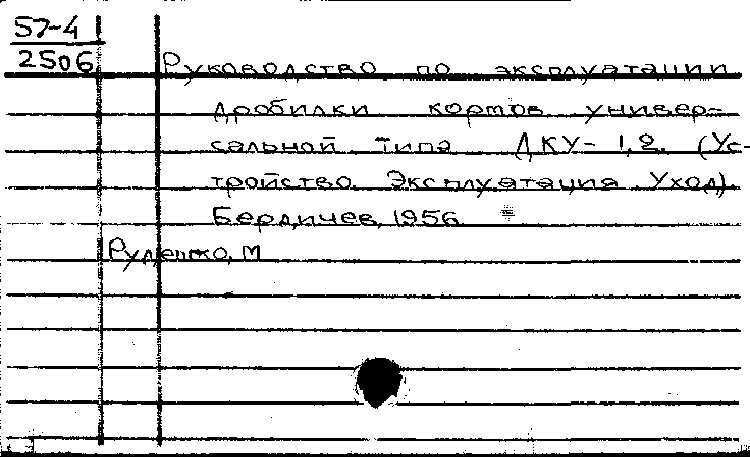 57-4
2506
Руководство по эксплуатации
дробилки кормов универ-
сальной типа ДКУ-1,2. (Ус-
тройство. Эксплуатация. Уход).
Бердичев, 1956
Руденко, М